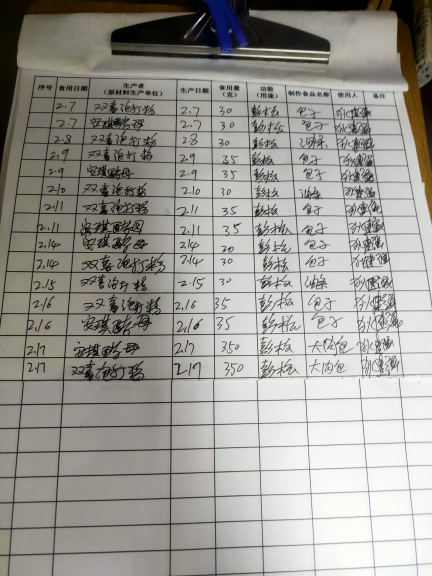 序号 食用日期 生产者（原材料生产单位） 生产日期 食用量（克） 功能（用途） 制作食品名称 使用人 备注
2.7 双喜泡打粉 2.7 30 彭松 包子
2.7 安琪酵母 2.7 30 彭松 包子
2.8 双喜泡打粉 2.8 30 彭松 油条
2.9 双喜泡打粉 2.9 35 彭松 包子
2.9 安琪酵母 2.9 35 彭松 包子
2.10 双喜泡打粉 2.10 30 彭松 油条
2.11 双喜泡打粉 2.11 35 彭松 包子
2.11 安琪酵母 2.11 35 彭松 包子
2.14 安琪酵母 2.14 30 彭松 包子
2.14 双喜泡打粉 2.14 30 彭松 包子
2.15 双喜泡打粉 2.15 30 彭松 油条
2.16 双喜泡打粉 2.16 35 彭松 包子
2.16 安琪酵母 2.16 35 彭松 包子
2.17 安琪酵母 2.17 350 彭松 大肉包
2.17 双喜泡打粉 2.17 350 彭松 大肉包